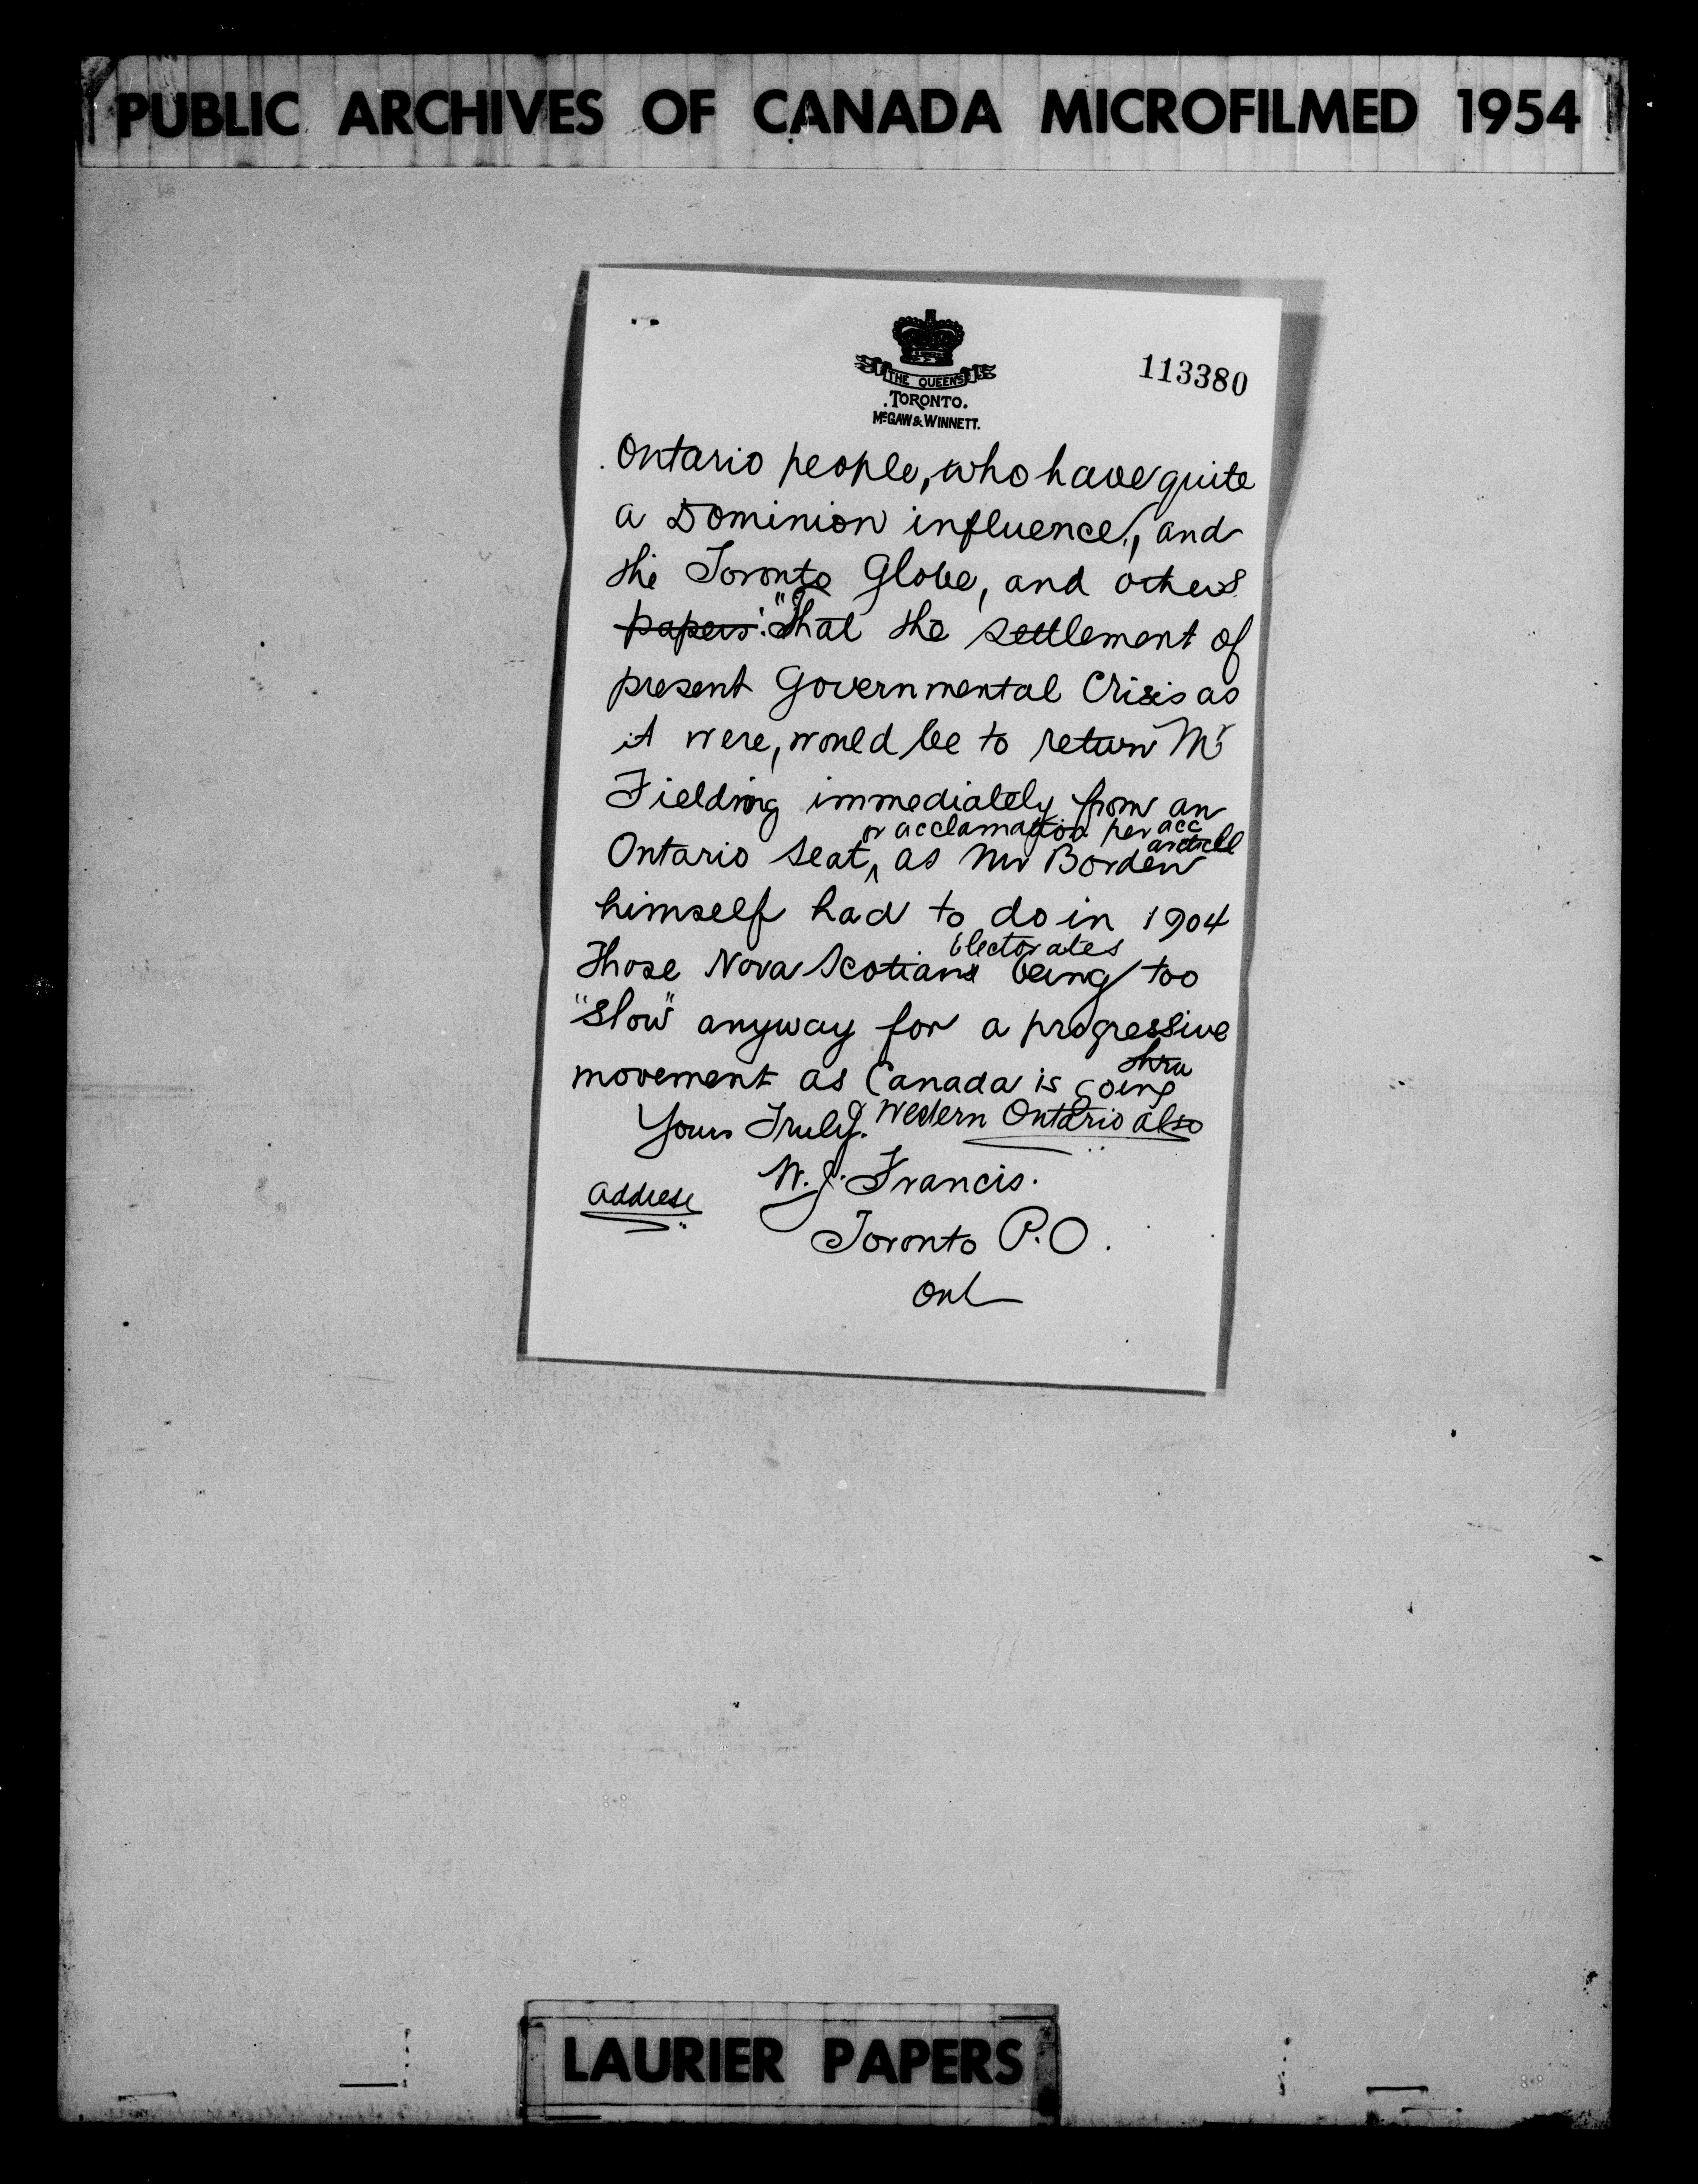 PUBLIC ARCHIVES OF CANADA MICROFILMED 1954
THE QUEEN'S
TORONTO.
McGAW & WINNETT.
113380
Ontario people, who have quite
a Dominion influence, and
the Toronto Globe, and others
papers: "That the settlement of
present Governmental Crisis as
it were, would be to return Mr
Fielding immediately from an
or acclamation per acc
article
Ontario seat, as Mr Borden
himself had to do in 1904
Electorates
Those Nova Scotians being too
"Slow" anyway for a progressive
thru
movement as Canada is going
Yours Truly. Western Ontario also
W. J. Francis.
Address
Toronto P.O.
Ont
LAURIER PAPERS